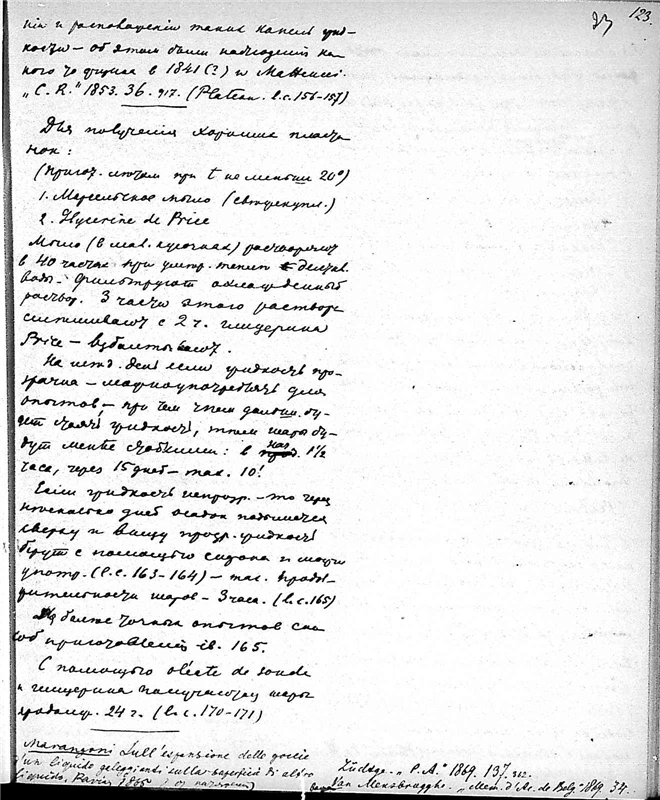 123.
нія и расповаженіи такихъ капель жид-
кости – объ этомъ были наблюденія ка-
кого то физика въ 1841 (?) и Matteucci.
„C. R." 1853. 36. 917. (Plateau. l.c. 156-157)
Для полученія хорошихъ пласти
нокъ:
(пригот. лучше при t не меньше 20°)
1. Марсельское мыло
2. Glycerine de Price
Мыло (в мал. кусочкахъ) растворяютъ
в 40 частяхъ при умѣр. темпе
воды. Фильтруютъ охлажденный
растворъ. 3 части этого раствора
смѣшиваютъ с 2 ч. глицерина
Price – взбалтываютъ.
На слѣд. день если жидкость про-
зрачна – можно употреблять для
опытовъ, – при чемъ чѣмъ дольше бу-
детъ стоять жидкость, тѣмъ шары бу-
дутъ менѣе стойкими: в нач. 1½
часа, через 15 дней – max. 10!
Если жидкость непрозр. – то через
нѣсколько дней осадокъ подымается
сверху и внизу прозр. жидкость
берутъ с помощью сифона и
употр. (l.c. 163-164) – max. продол-
жительности шаровъ – 3 часа. (l.c. 165)
Для болѣе точныхъ опытовъ спо
собъ приготовленія ib. 165.
С помощью oléate de soude
и глицерина получаются шары
24 ч. (l.c. 170-171)
Marangoni Sull' espansione delle goccie
d'un liquido galleggianti sulla superficie di altro
liquido, Pavia, 1865
Lüdtge. „P. A." 1869. 137. 362.
Van Mensbrugghe. „Mem. d'Ac. de Belg" 1869. 34.